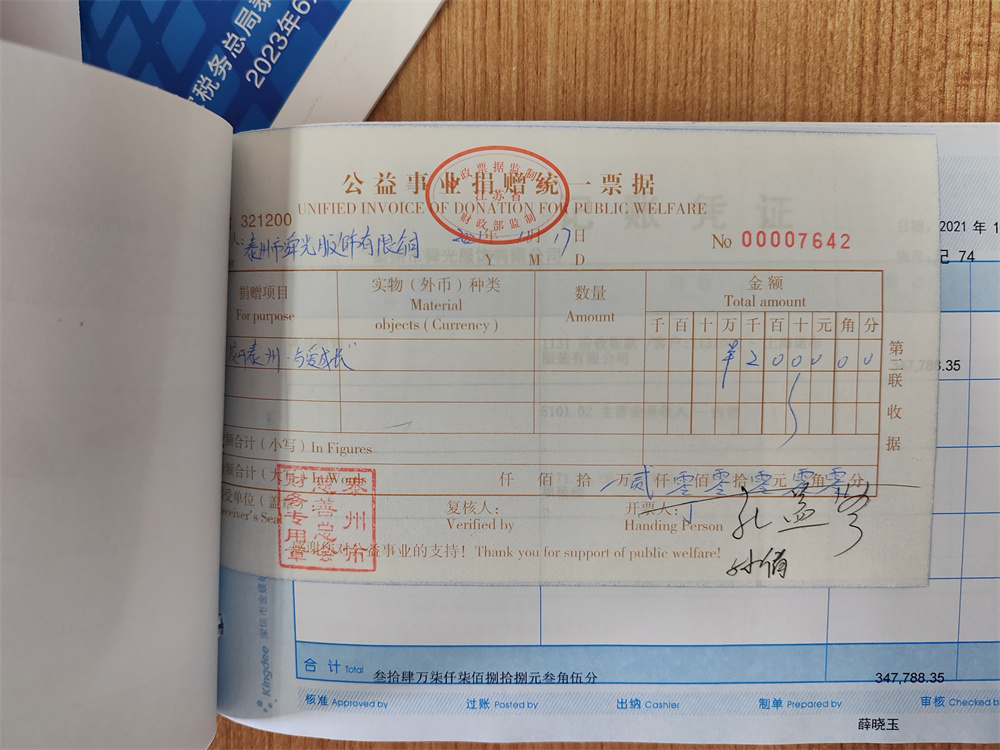 税务总局泰
2023年6
公益事业捐赠统一票据
财政票据监制
江苏省
财政部监制
UNIFIED INVOICE OF DONATION FOR PUBLIC WELFARE
记账凭证
321200
2021年1
人：泰州市舜光服饰有限公司 年 月17日
Y M D
No 00007642
记 74
捐赠项目
For purpose
实物（外币）种类
Material
objects (Currency)
数量
Amount
金额
Total amount
千百十万千百十元角分
与爱成长"
¥200000
第二联 收据
347,788.35
额合计（小写）In Figures
额合计（大写）In Words
仟 佰 拾 万贰仟零佰零拾零元零角零分
受单位（盖章）
eceiver's Seal
泰州市慈善总会财务专用章
复核人：
Verified by
开票人：
Handing Person
感谢您对公益事业的支持！Thank you for support of public welfare!
Kingdee
合计 Total
叁拾肆万柒仟柒佰捌拾捌元叁角伍分
347,788.35
核准 Approved by
过账 Posted by
出纳 Cashier
制单 Prepared by
审核 Checked b
薛晓玉